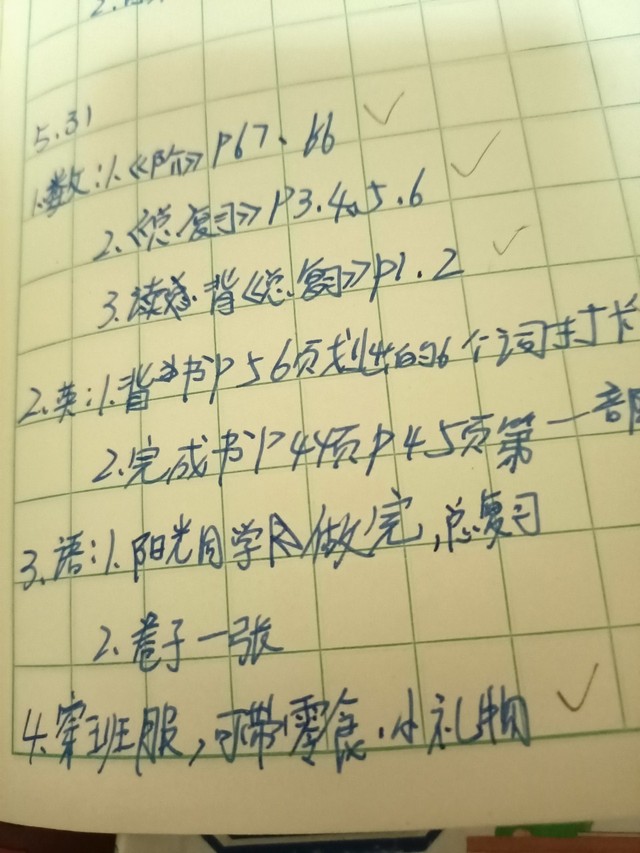 5.31
1.数:1.《阶》P67、66
2.《总复习》P3.4.5.6
3.读.背《总复习》P1.2
2.英:1.背书P56页划出的6个词打卡
2.完成书P44页P45页第一部
3.语:1.阳光同学做完,总复习
2.卷子一张
4.穿班服,可带零食.小礼物